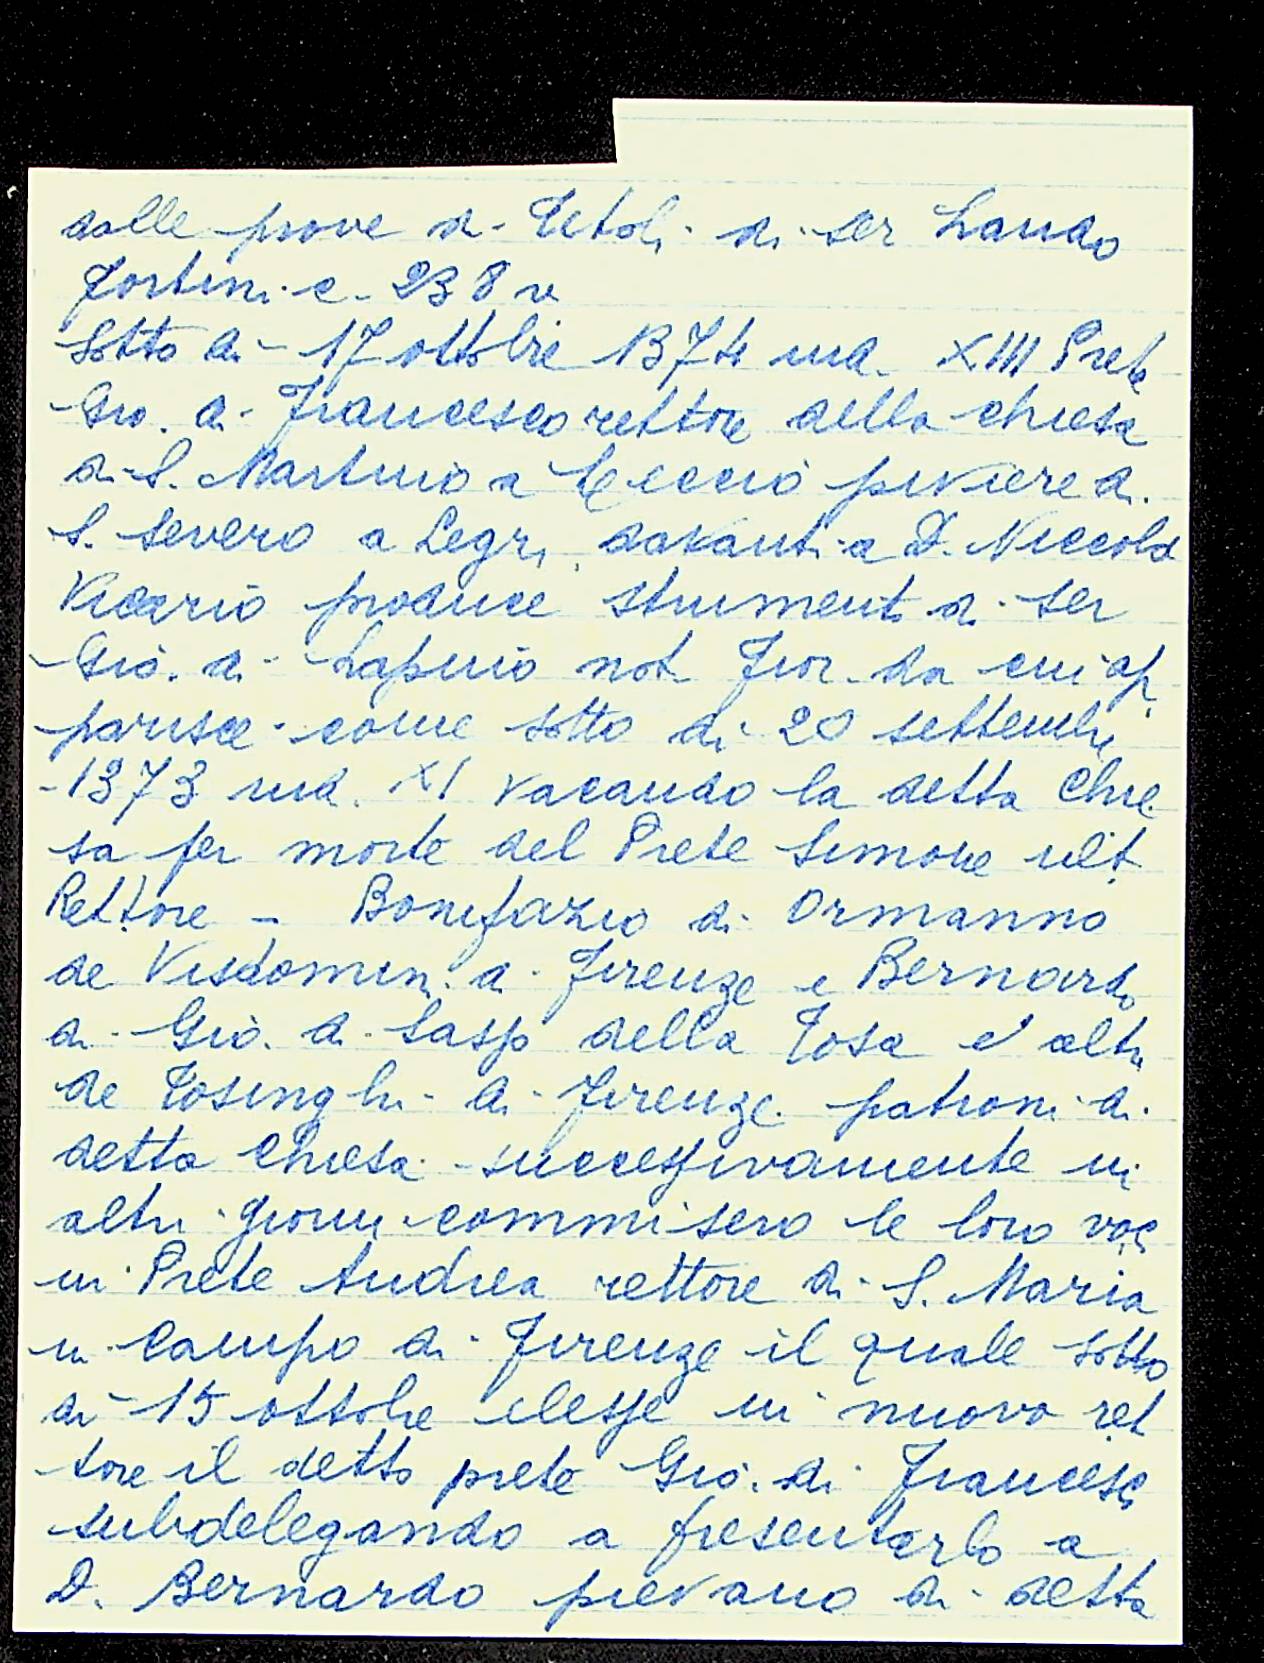 dalle prove di Titoli di ser Lando
Fortini c. 238 v
Sotto di 17 ottobre 1374 ind. XIII Prete
Gio. di Francesco rettore della chiesa
di S. Martino a Leccio piviere di
S. Severo a Legri, davanti a D. Niccolò
Vicario produce strumenti di ser
Gio. di Lapino not. Fior. da cui ap
parisce come sotto di 20 settembre
1373 ind. XI vacando la detta Chie
sa per morte del Prete Simone ult.
Rettore - Bonifazio di Ormanno
de Visdomini di Firenze e Bernardo
di Gio. di Sasso della Tosa e altri
de Tosinghi di Firenze patroni di
detta Chiesa successivamente in
altri giorni commisero le loro voci
in Prete Andrea rettore di S. Maria
in Campo di Firenze il quale sotto
di 15 ottobre elesse in nuovo ret
tore il detto prete Gio. di Francesco
subdelegando a presentarlo a
D. Bernardo pievano di detta